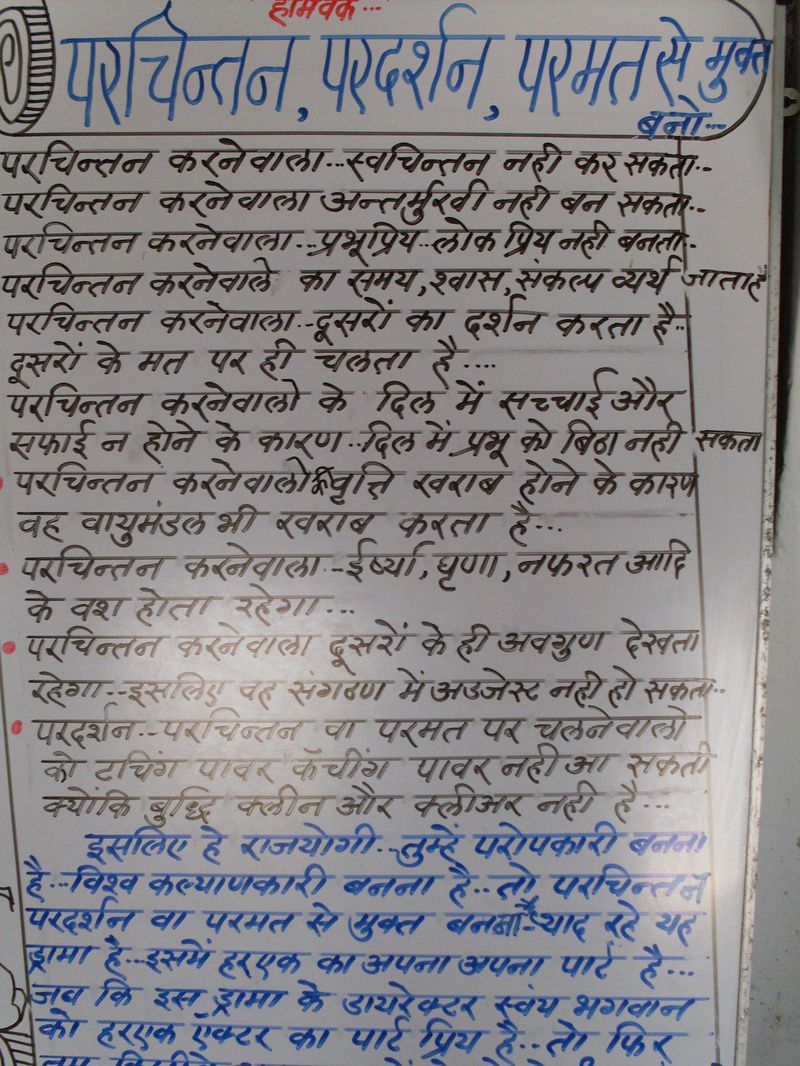 होमवर्क...
परचिन्तन, परदर्शन, परमत से मुक्त
बनो...
परचिन्तन करनेवाला...स्वचिन्तन नही कर सकता..
परचिन्तन करनेवाला अन्तर्मुखी नही बन सकता..
परचिन्तन करनेवाला...प्रभूप्रिय..लोक प्रिय नही बनता.
परचिन्तन करनेवाले का समय, श्वास, संकल्प व्यर्थ जाता है
परचिन्तन करनेवाला..दूसरों का दर्शन करता है..
दूसरों के मत पर ही चलता है....
परचिन्तन करनेवालो के दिल में सच्चाई और
सफाई न होने के कारण..दिल में प्रभू को बिठा नही सकता
परचिन्तन करनेवालो की वृत्ति खराब होने के कारण
वह वायुमंडल भी खराब करता है...
परचिन्तन करनेवाला..ईर्ष्या, घृणा, नफरत आदि
के वश होता रहेगा...
परचिन्तन करनेवाला दूसरों के ही अवगुण देखता
रहेगा..इसलिए वह संगठण में अडजेस्ट नही हो सकता..
परदर्शन..परचिन्तन वा परमत पर चलनेवालो
को टचिंग पावर कॅचींग पावर नही आ सकती
क्योंकि बुध्दि क्लीन और क्लीअर नही है...
इसलिए हे राजयोगी..तुम्हें परोपकारी बनना
है...विश्व कल्याणकारी बनना है..तो परचिन्तन
परदर्शन वा परमत से मुक्त बनना है याद रहे यह
ड्रामा है...इसमें हरएक का अपना अपना पार्ट है...
जब कि इस ड्रामा के डायरेक्टर स्वंय भगवान
को हरएक ऍक्टर का पार्ट प्रिय है..तो फिर